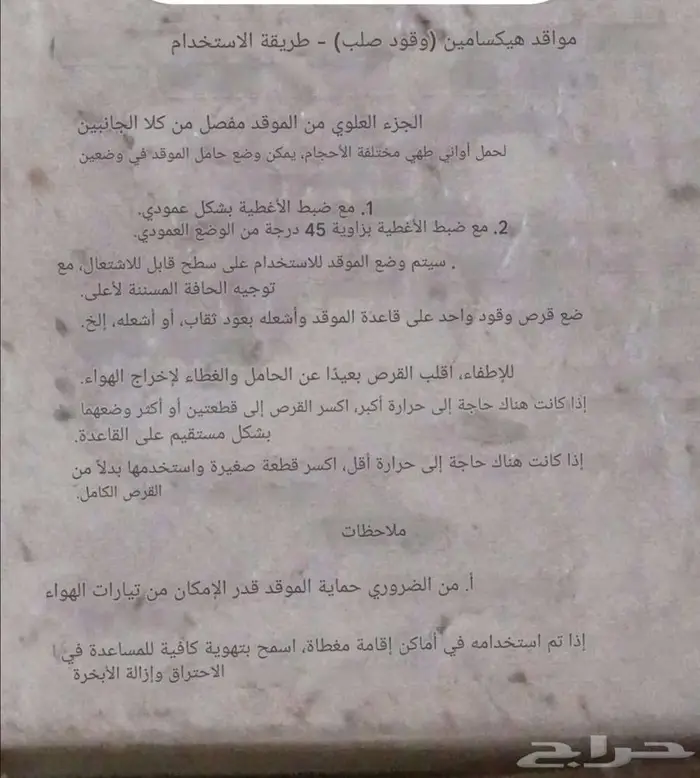 مواقد هيكسامين (وقود صلب) - طريقة الاستخدام
الجزء العلوي من الموقد مفصل من كلا الجانبين
لحمل أواني طهي مختلفة الأحجام، يمكن وضع حامل الموقد في وضعين
1. مع ضبط الأغطية بشكل عمودي.
2. مع ضبط الأغطية بزاوية 45 درجة من الوضع العمودي.
. سيتم وضع الموقد للاستخدام على سطح قابل للاشتعال، مع
توجيه الحافة المسننة لأعلى.
ضع قرص وقود واحد على قاعدة الموقد وأشعله بعود ثقاب، أو أشعله، إلخ.
للإطفاء، اقلب القرص بعيدًا عن الحامل والغطاء لإخراج الهواء.
إذا كانت هناك حاجة إلى حرارة أكبر، اكسر القرص إلى قطعتين أو أكثر وضعهما
بشكل مستقيم على القاعدة.
إذا كانت هناك حاجة إلى حرارة أقل، اكسر قطعة صغيرة واستخدمها بدلاً من
القرص الكامل.
ملاحظات
أ. من الضروري حماية الموقد قدر الإمكان من تيارات الهواء
إذا تم استخدامه في أماكن إقامة مغطاة، اسمح بتهوية كافية للمساعدة في
الاحتراق وإزالة الأبخرة
حراج